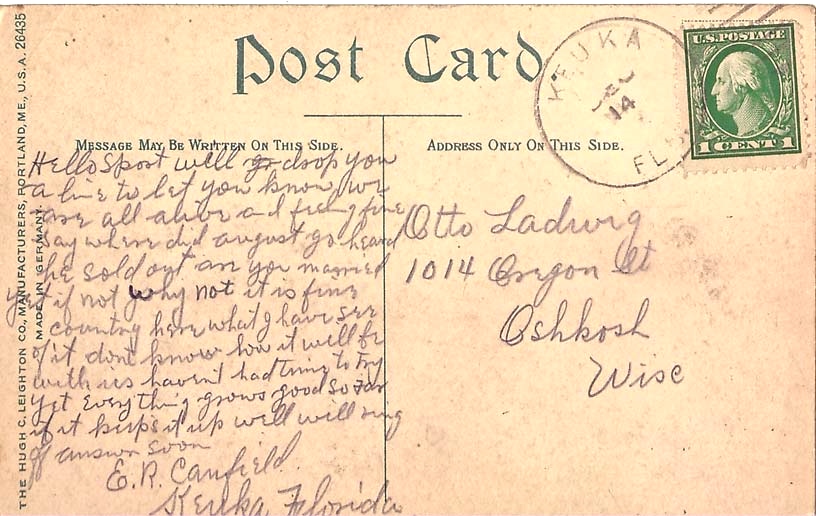 Post Card
MESSAGE MAY BE WRITTEN ON THIS SIDE.
ADDRESS ONLY ON THIS SIDE.
THE HUGH C. LEIGHTON CO., MANUFACTURERS, PORTLAND, ME., U.S.A. 26435
MADE IN GERMANY.
KEUKA
14
FLA
U.S. POSTAGE
1 CENT 1
Hello Sport well drop you
a line to let you know we
are all alive and feeling fine
say where did august go heard
he sold out are you married
yet if not why not it is fine
country here what I have see
of it dont know how it will be
with us haven't had time to try
yet everything grows good so far
if it keeps it up well will ring
off answer soon
E.R. Canfield.
Keuka Florida
Otto Ladwig
1014 Oregon St
Oshkosh
Wisc